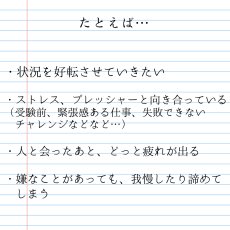 たとえば…
・状況を好転させていきたい
・ストレス、プレッシャーと向き合っている
（受験前、緊張感ある仕事、失敗できない
チャレンジなどなど…）
・人と会ったあと、どっと疲れが出る
・嫌なことがあっても、我慢したり諦めて
しまう